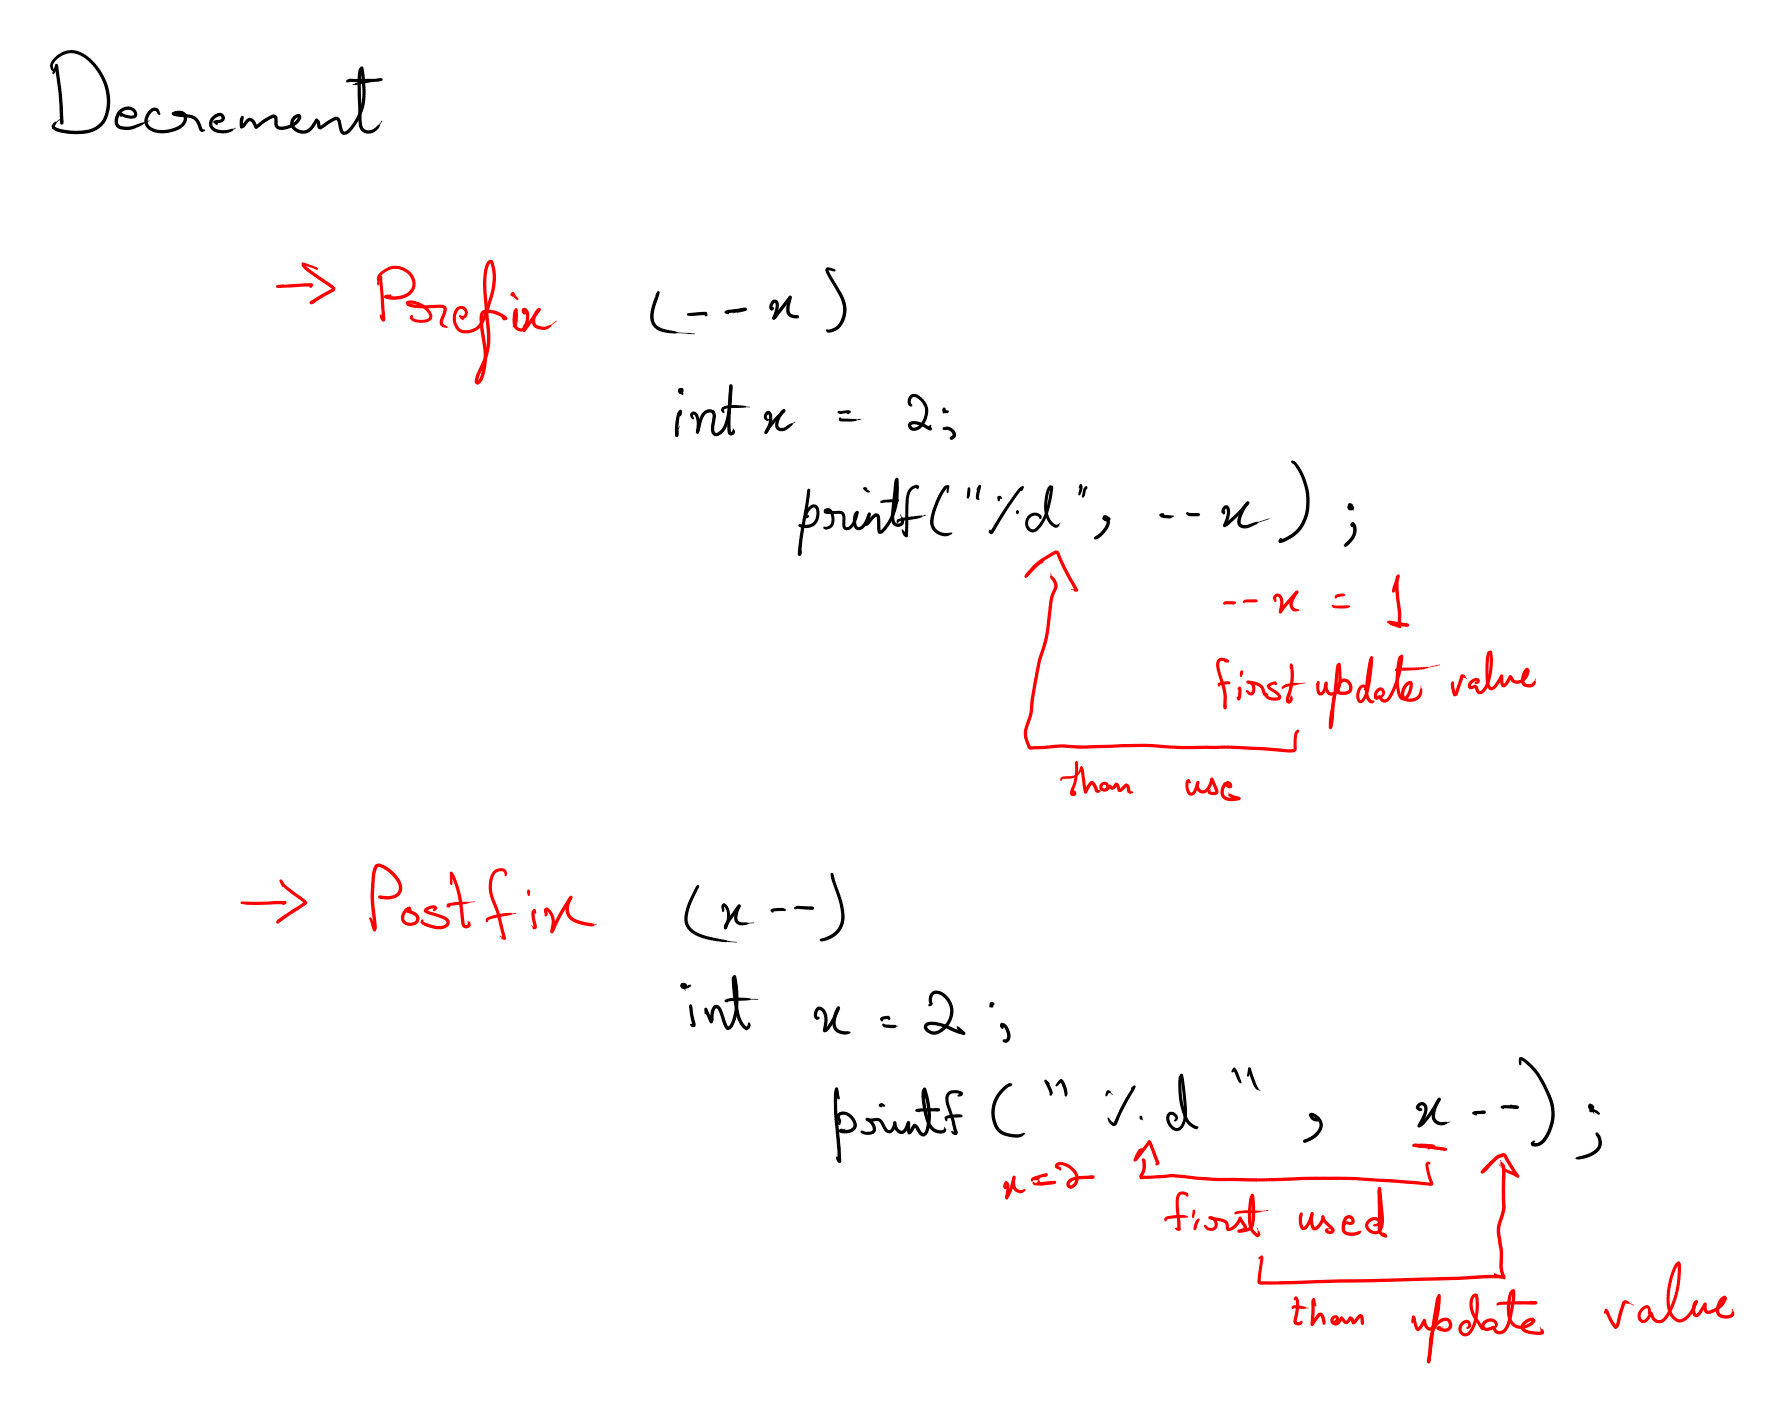 Decrement
→ Prefix (--x)
int x = 2;
printf("%d", --x);
--x = 1
first update value
than use
→ Postfix (x--)
int x = 2;
printf("%d", x--);
x=2
first used
than update value